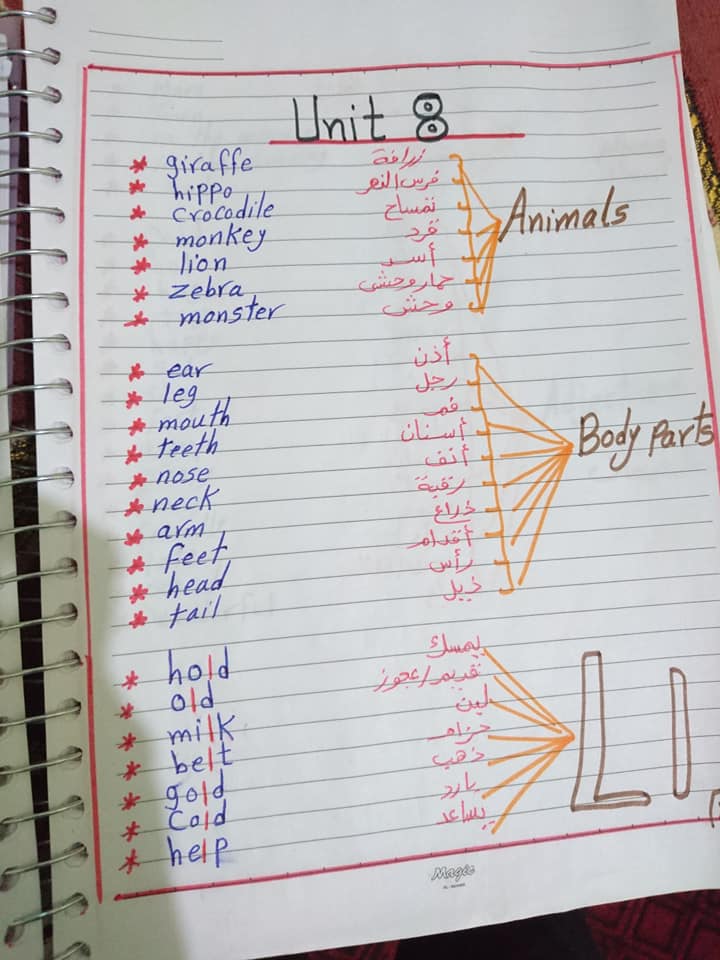 Unit 8
* giraffe زرافة
* hippo فرس النهر
* crocodile تمساح
* monkey قرد
* lion أسد
* zebra حمار وحشى
* monster وحش
Animals
* ear أذن
* leg رجل
* mouth فم
* teeth أسنان
* nose أنف
* neck رقبة
* arm ذراع
* feet أقدام
* head رأس
* tail ذيل
Body parts
* hold يمسك
* old قديم/عجوز
* milk لبن
* belt حزام
* gold ذهب
* Cold بارد
* help يساعد
L l
Magic